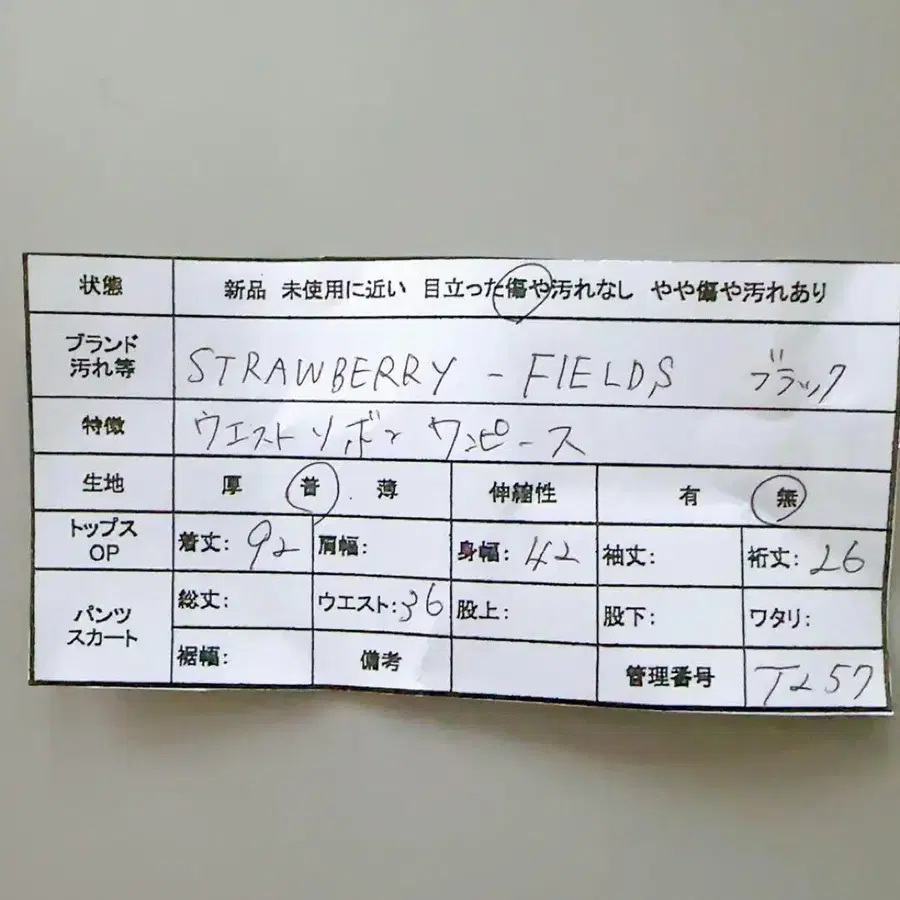 状態 新品 未使用に近い 目立った傷や汚れなし やや傷や汚れあり
ブランド
汚れ等 STRAWBERRY - FIELDS ブラック
特徴 ウエストリボン ワンピース
生地 厚 普 薄 伸縮性 有 無
トップス
OP 着丈: 92 肩幅: 身幅: 42 袖丈: 裄丈: 26
パンツ
スカート 総丈: ウエスト: 36 股上: 股下: ワタリ:
裾幅: 備考 管理番号 T257